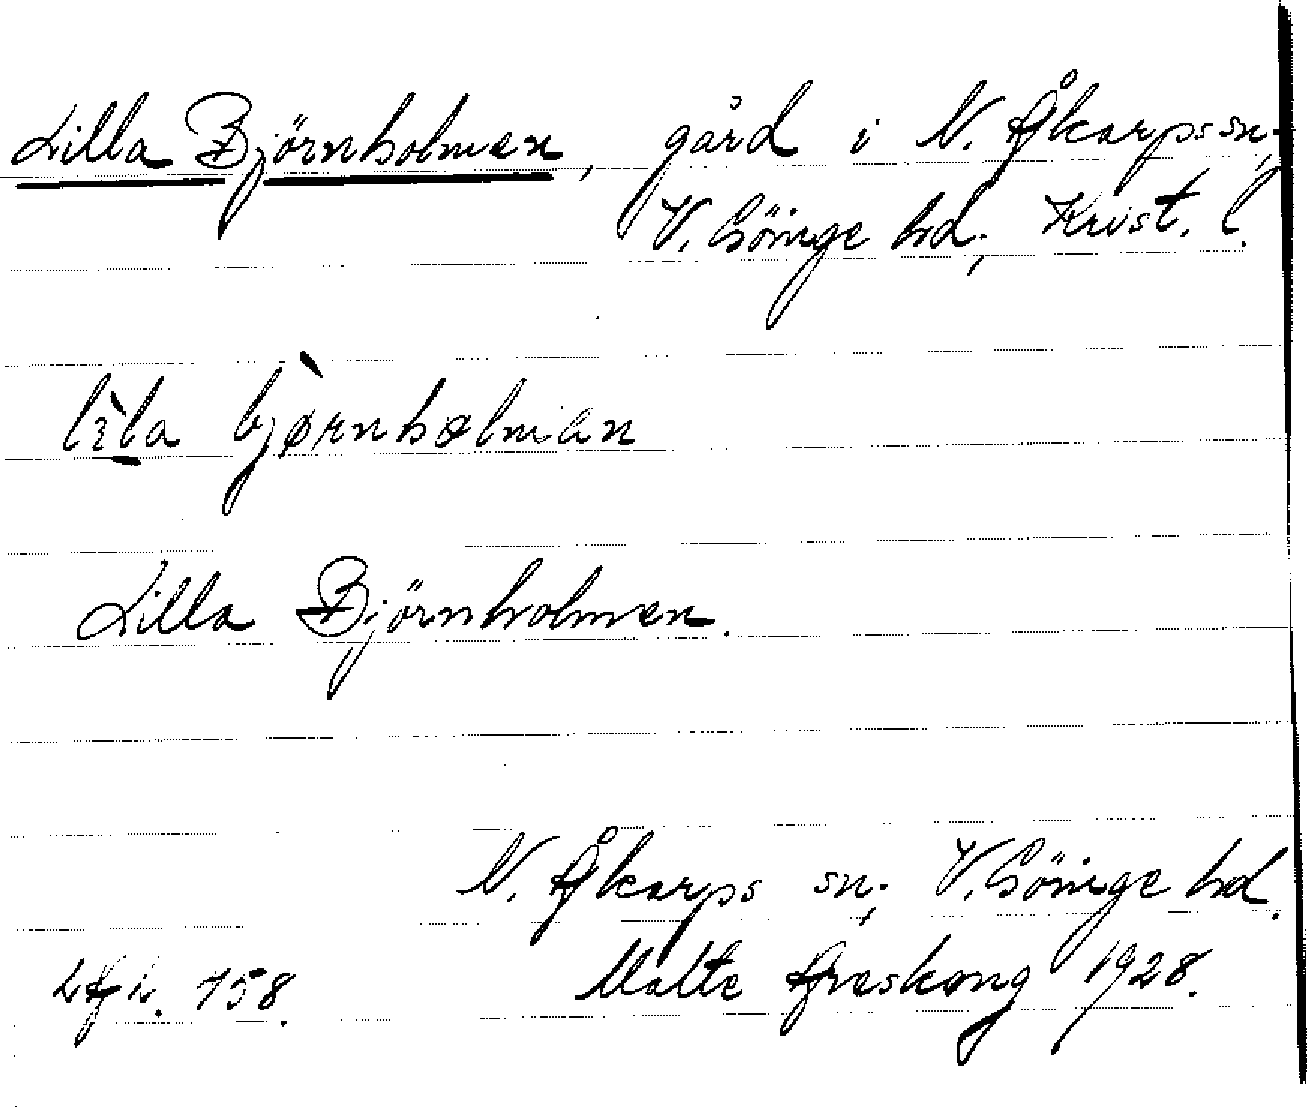 Lilla Björnholmen, gård i N. Åkarps sn.,
V. Göinge hd., Krist. l.
lìla bjørnhɷlmən
Lilla Björnholmen.
N. Åkarps sn., V. Göinge hd.
758. Malte Areskong 1928.